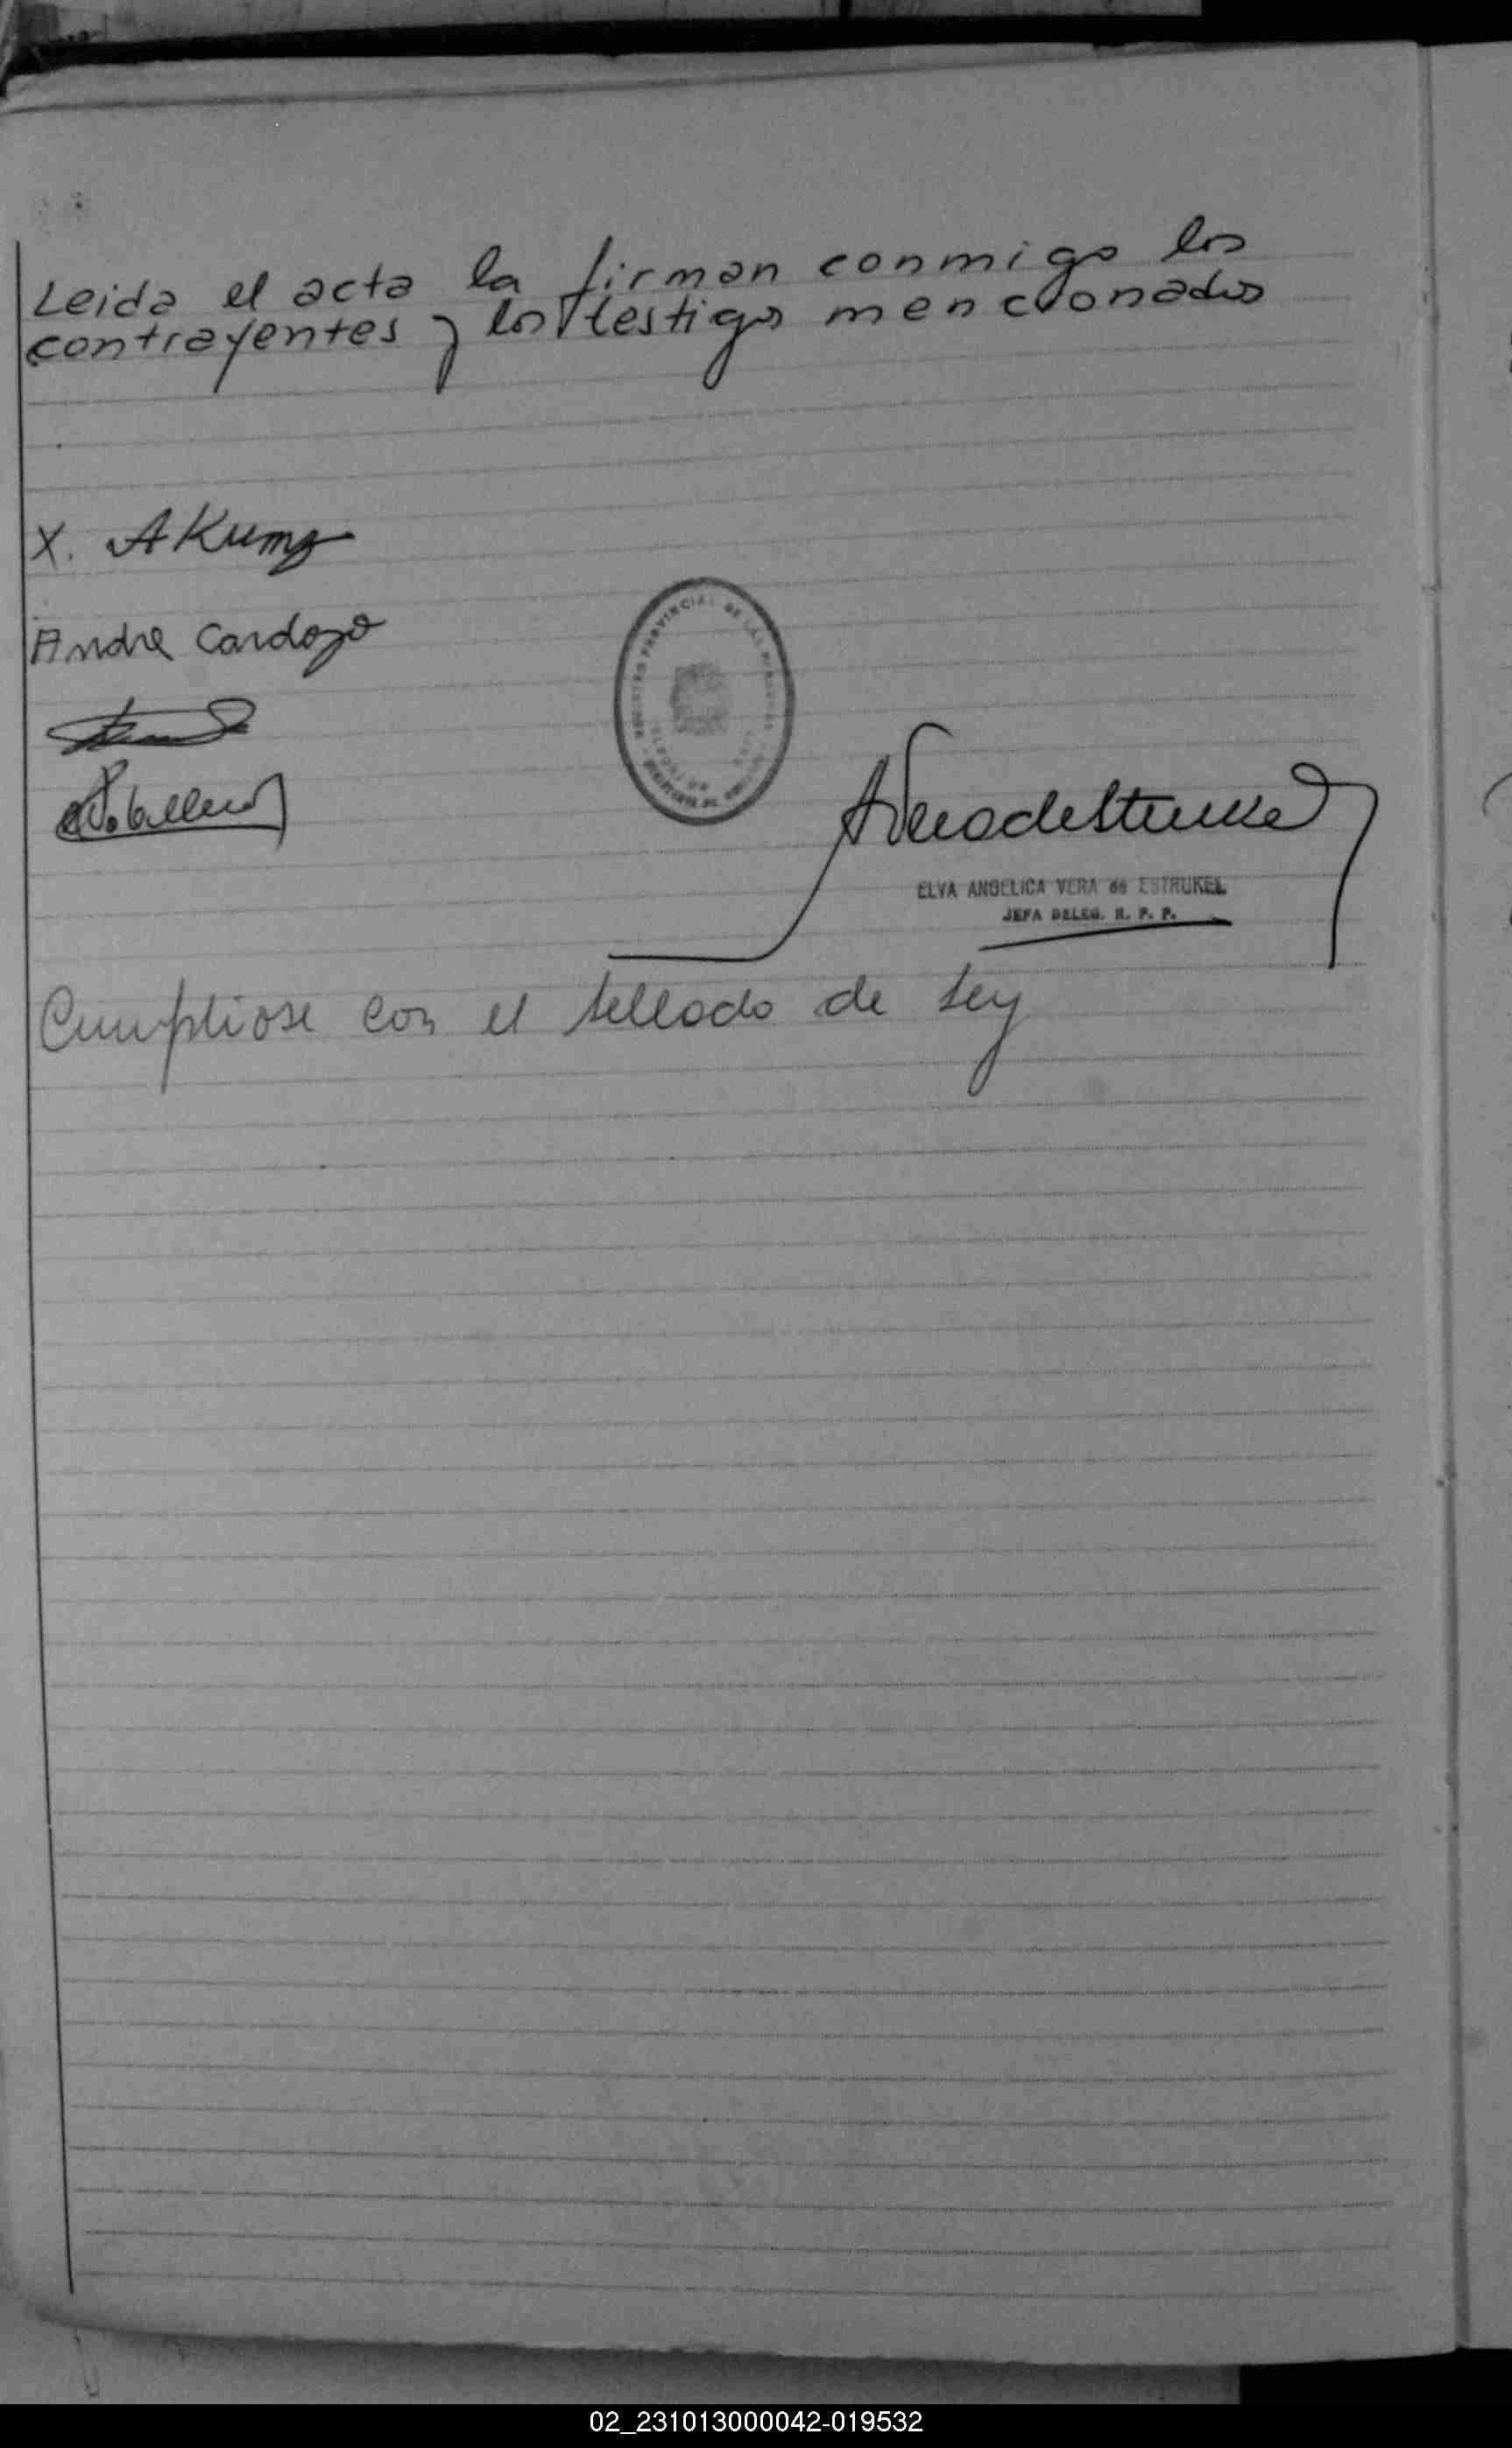 Leida el acta la firman conmigo los
contrayentes y los testigos mencionados
X. AKump
Andre Cardozo
REGISTRO PROVINCIAL DE LAS PERSONAS
ELVA ANGELICA VERA de ESTRUKEL
JEFA DELEG. R. P. P.
Cumpliose con el sellado de Ley
02_231013000042-019532